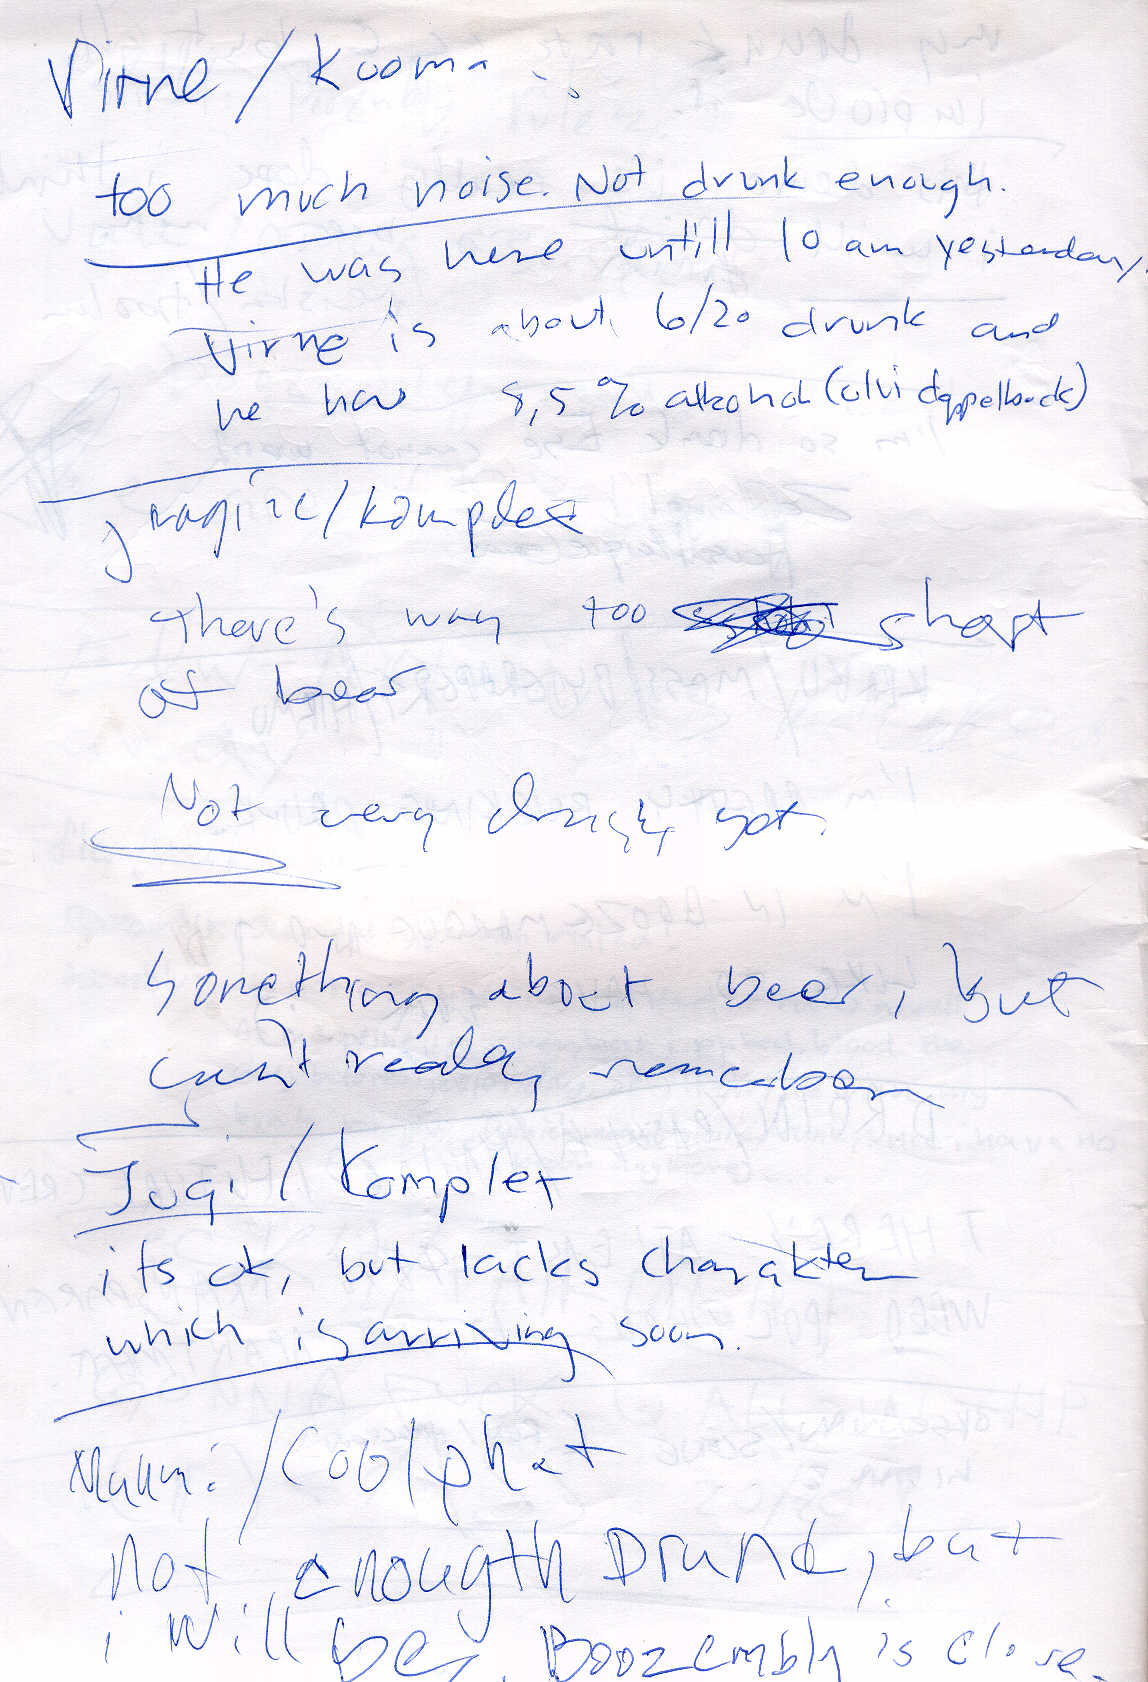 Virne / Kooma :
too much noise. Not drunk enough.
He was here untill 10 am yesterday.
Virne is about 6/20 drunk and
he has 8,5 % alkohol (olvi
/ Komplex
there's way too short
of beer
Not very drunk yet.
Something about beer, but
can't really remember
Jugi / Komplex
its ok, but lacks charakter
which is arriving soon.
/ Coolphat
not enougth Drunk, but
i will be. Boozembly is close.